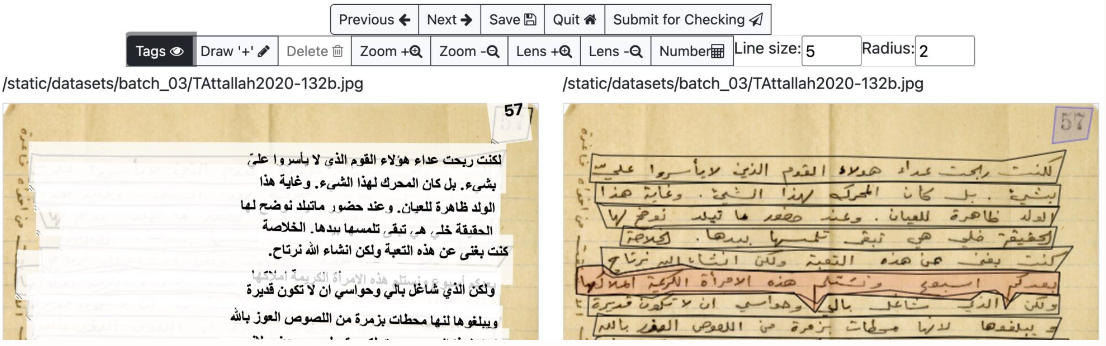 Previous Next Save Quit Submit for Checking
Tags Draw '+' Delete Zoom + Zoom - Lens + Lens - Number Line size: 5 Radius: 2
/static/datasets/batch_03/TAttallah2020-132b.jpg
57
لكنت ربحت عداء هؤلاء القوم الذي لا يأسروا عليّ
بشيء. بل كان المحرك لهذا الشيء. وغاية هذا
الولد ظاهرة للعيان. وعند حضور ماتيلد نوضح لها
الحقيقة خلي هي تبقى تلمسها بيدها. الخلاصة
كنت بغنى عن هذه التعبة ولكن انشاء الله نرتاح.
هذه الامرأة الكريمة املاكها
ولكن الذي شاغل بالي وحواسي ان لا تكون قديرة
ويبلغوها لنها محطات بزمرة من اللصوص العوز بالله
/static/datasets/batch_03/TAttallah2020-132b.jpg
57
لكنت ربحت عداء هولاء القوم الذين لا يأسروا علي
بشيء. بل كان المحرك لهذا الشيء. وغاية هذا
الولد ظاهرة للعيان. وعند حضور ما تيلد نوضح لها
الحقيقة خلي هي تبقى تلمسها بيدها. الخلاصة
كنت بغنى عن هذه التعبة ولكن انشاء الله نرتاح
اسبوع ونستلم هذه الامرأة الكريمة املاكها
ولكن الذي شاغل بالي وحواسي ان لا تكون قديرة
و يبلغوها لانها محطات بزمرة من اللصوص بالله